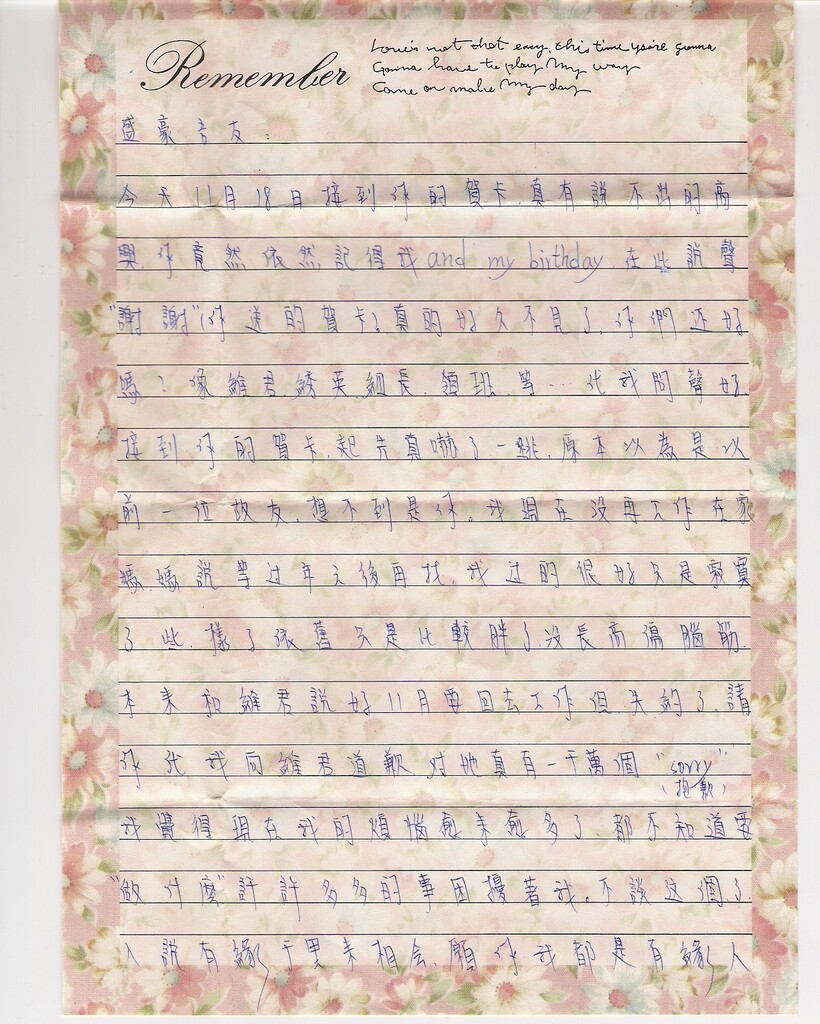 Remember
Love's not that easy. this time you're gonna
Gonna have to play my way
Come on make my day
盛豪吾友:
今天11月18日接到你的賀卡.真有說不出的高
興.你竟然依然記得我and my birthday在此說聲
"謝謝"(你送的賀卡).真的好久不見了.你們还好
嗎?像維君.綉英.組長.領班.等…代我問聲好.
接到你的賀卡.起先真嚇了一跳.原本以為是以
前一位故友.想不到是你。我現在沒再工作在家
媽媽說等过年之後再找.我过的很好只是寂寞
了些.樣子依舊只是比較胖了.沒長高傷腦筋.
本来和維君說好11月要回去工作但失約了.請
你代我向維君道歉对她真有一千萬個"sorry"
(抱歉)
我覺得現在我的煩惱愈来愈多了.都不知道要
"做什麼"許許多多的事困擾著我。不談这個了
人說有緣千里来相会.願你我都是有緣人